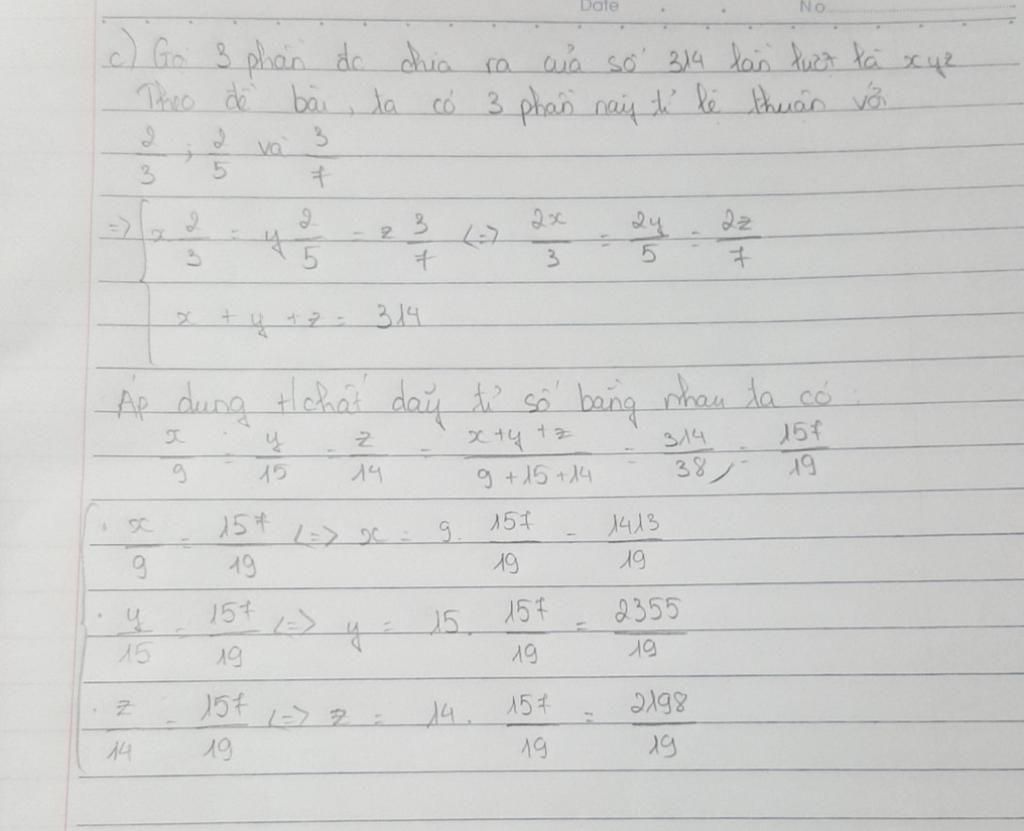 Date No
c) Gọi 3 phần đc chia ra của số 314 lần lượt là x y z
Theo đề bài, ta có 3 phần này tỉ lệ thuận với
2/3 ; 2/5 và 3/7
=> { x 2/3 = y 2/5 = z 3/7 <=> 2x/3 = 2y/5 = 2z/7
x + y + z = 314
Áp dụng t/chất dãy tỉ số bằng nhau ta có :
x/9 = y/15 = z/14 = x+y+z/9+15+14 = 314/38 = 157/19
{ · x/9 = 157/19 <=> x = 9. 157/19 = 1413/19
· y/15 = 157/19 <=> y = 15. 157/19 = 2355/19
· z/14 = 157/19 <=> z = 14. 157/19 = 2198/19